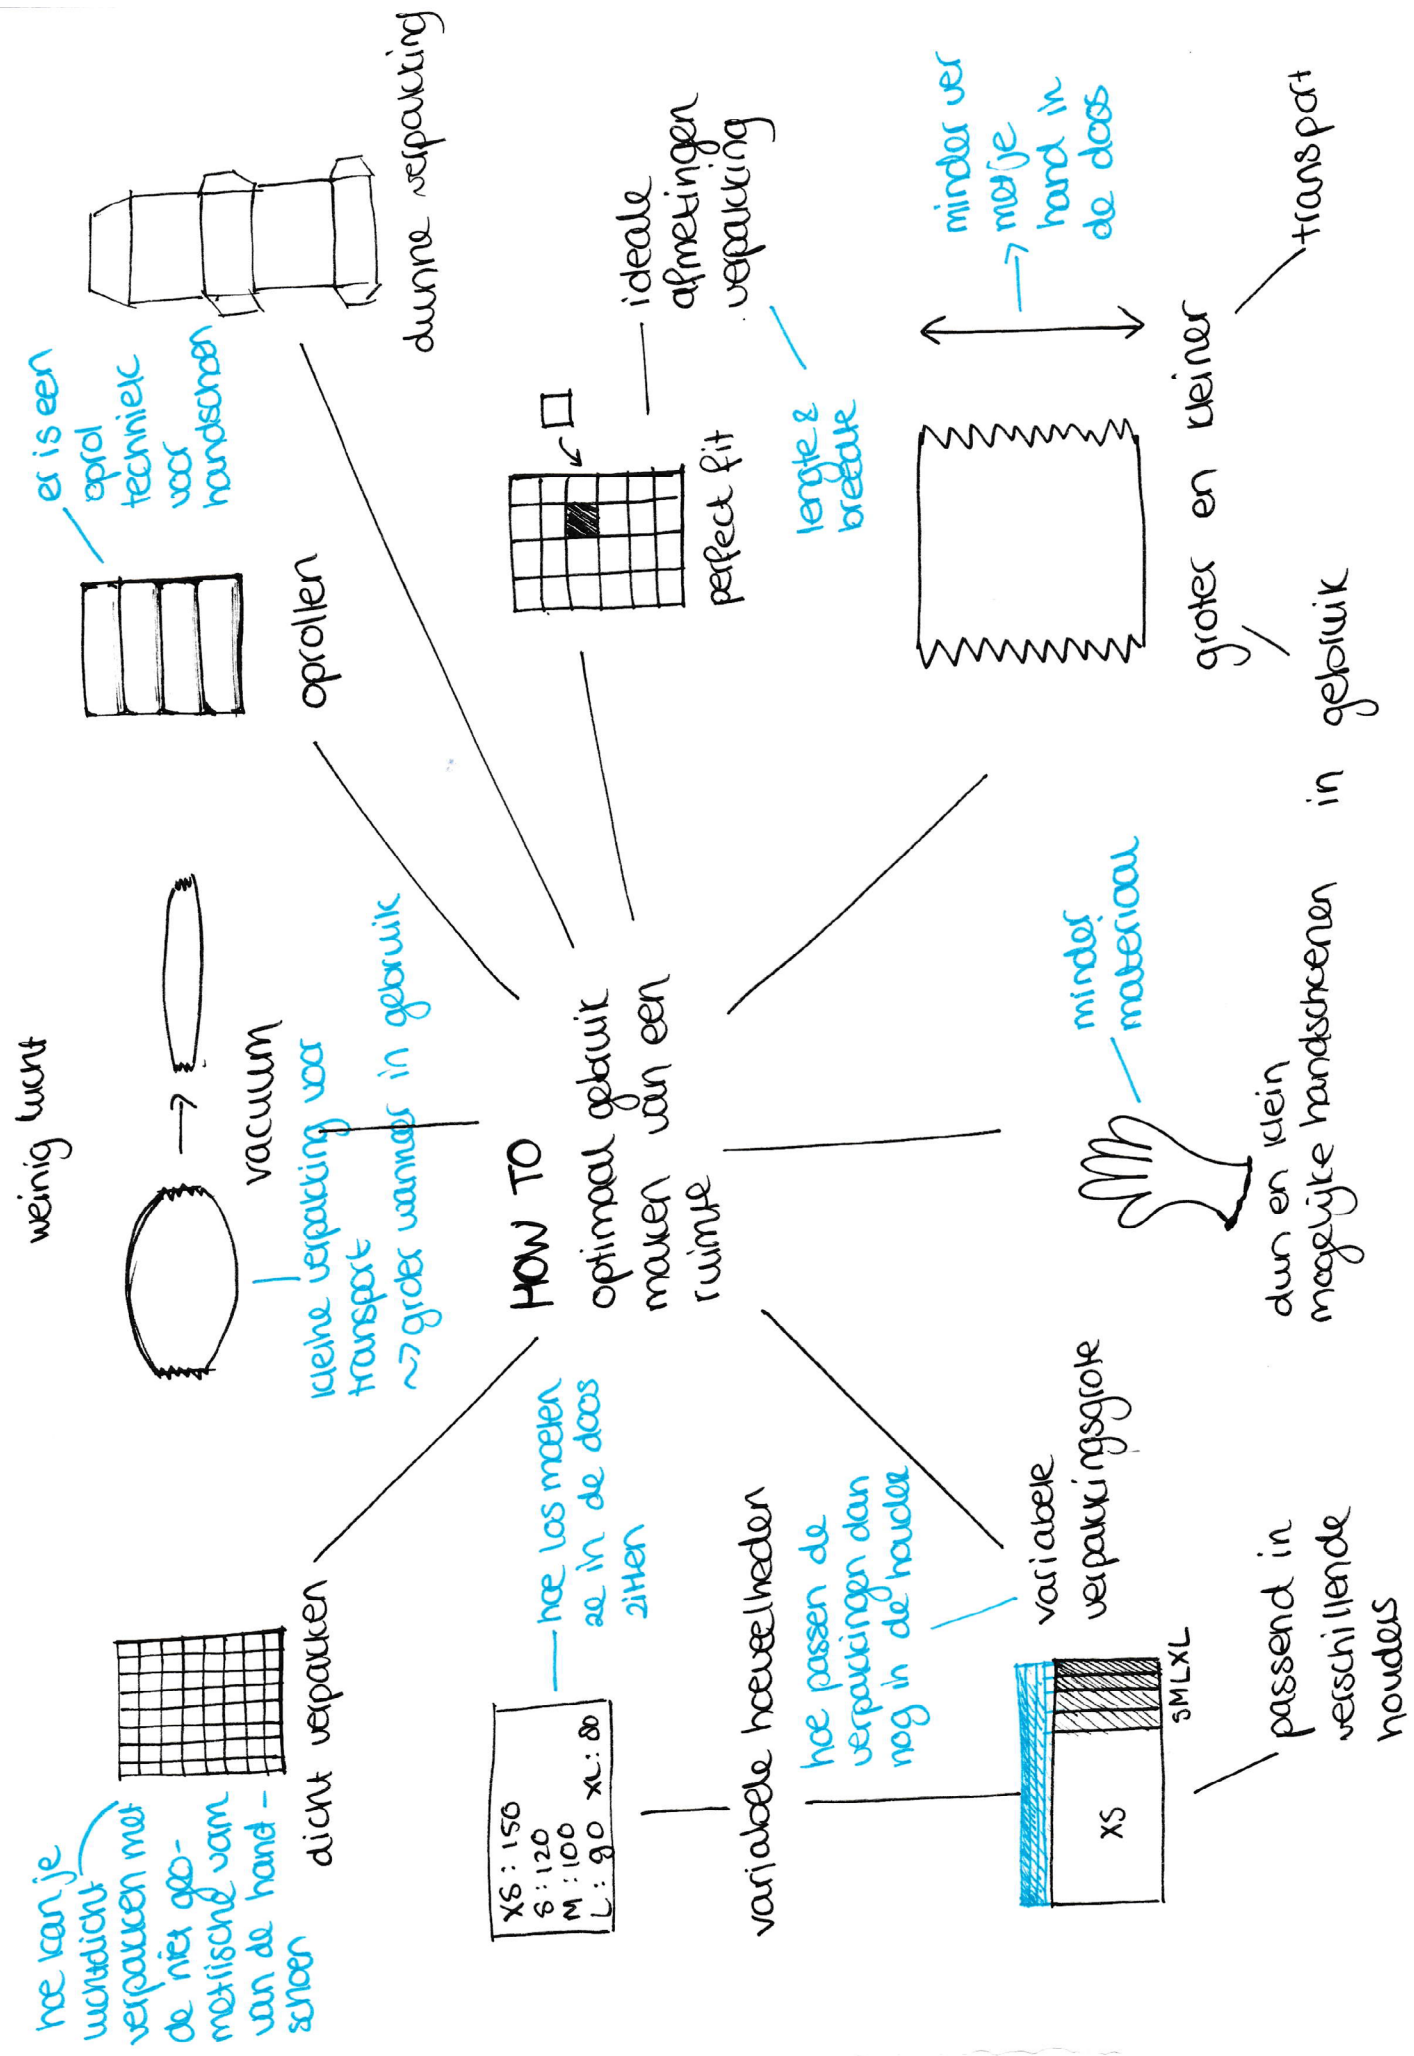 HOW TO
optimaal gebruik
maken van een
ruimte
weinig lucht
vacuum
kleine verpakking voor
transport
~> groter wanneer in gebruik
oprollen
er is een
oprol
techniek
voor
handschoen
dunne verpakking
perfect fit
ideale
afmetingen
verpakking
lengte &
breedte
groter en kleiner
minder ver
met je
hand in
de doos
transport
in gebruik
minder
materiaal
dun en klein
mogelijke handschoenen
variabele
verpakkingsgrote
hoe passen de
verpakkingen dan
nog in de houder
XS
S M L XL
passend in
verschillende
houders
variabele hoeveelheden
XS : 150
S : 120
M : 100
L : 90 XL : 80
hoe los moeten
ze in de doos
zitten
dicht verpakken
hoe kan je
luchtdicht
verpakken met
de niet geo-
metrische vorm
van de hand-
schoen